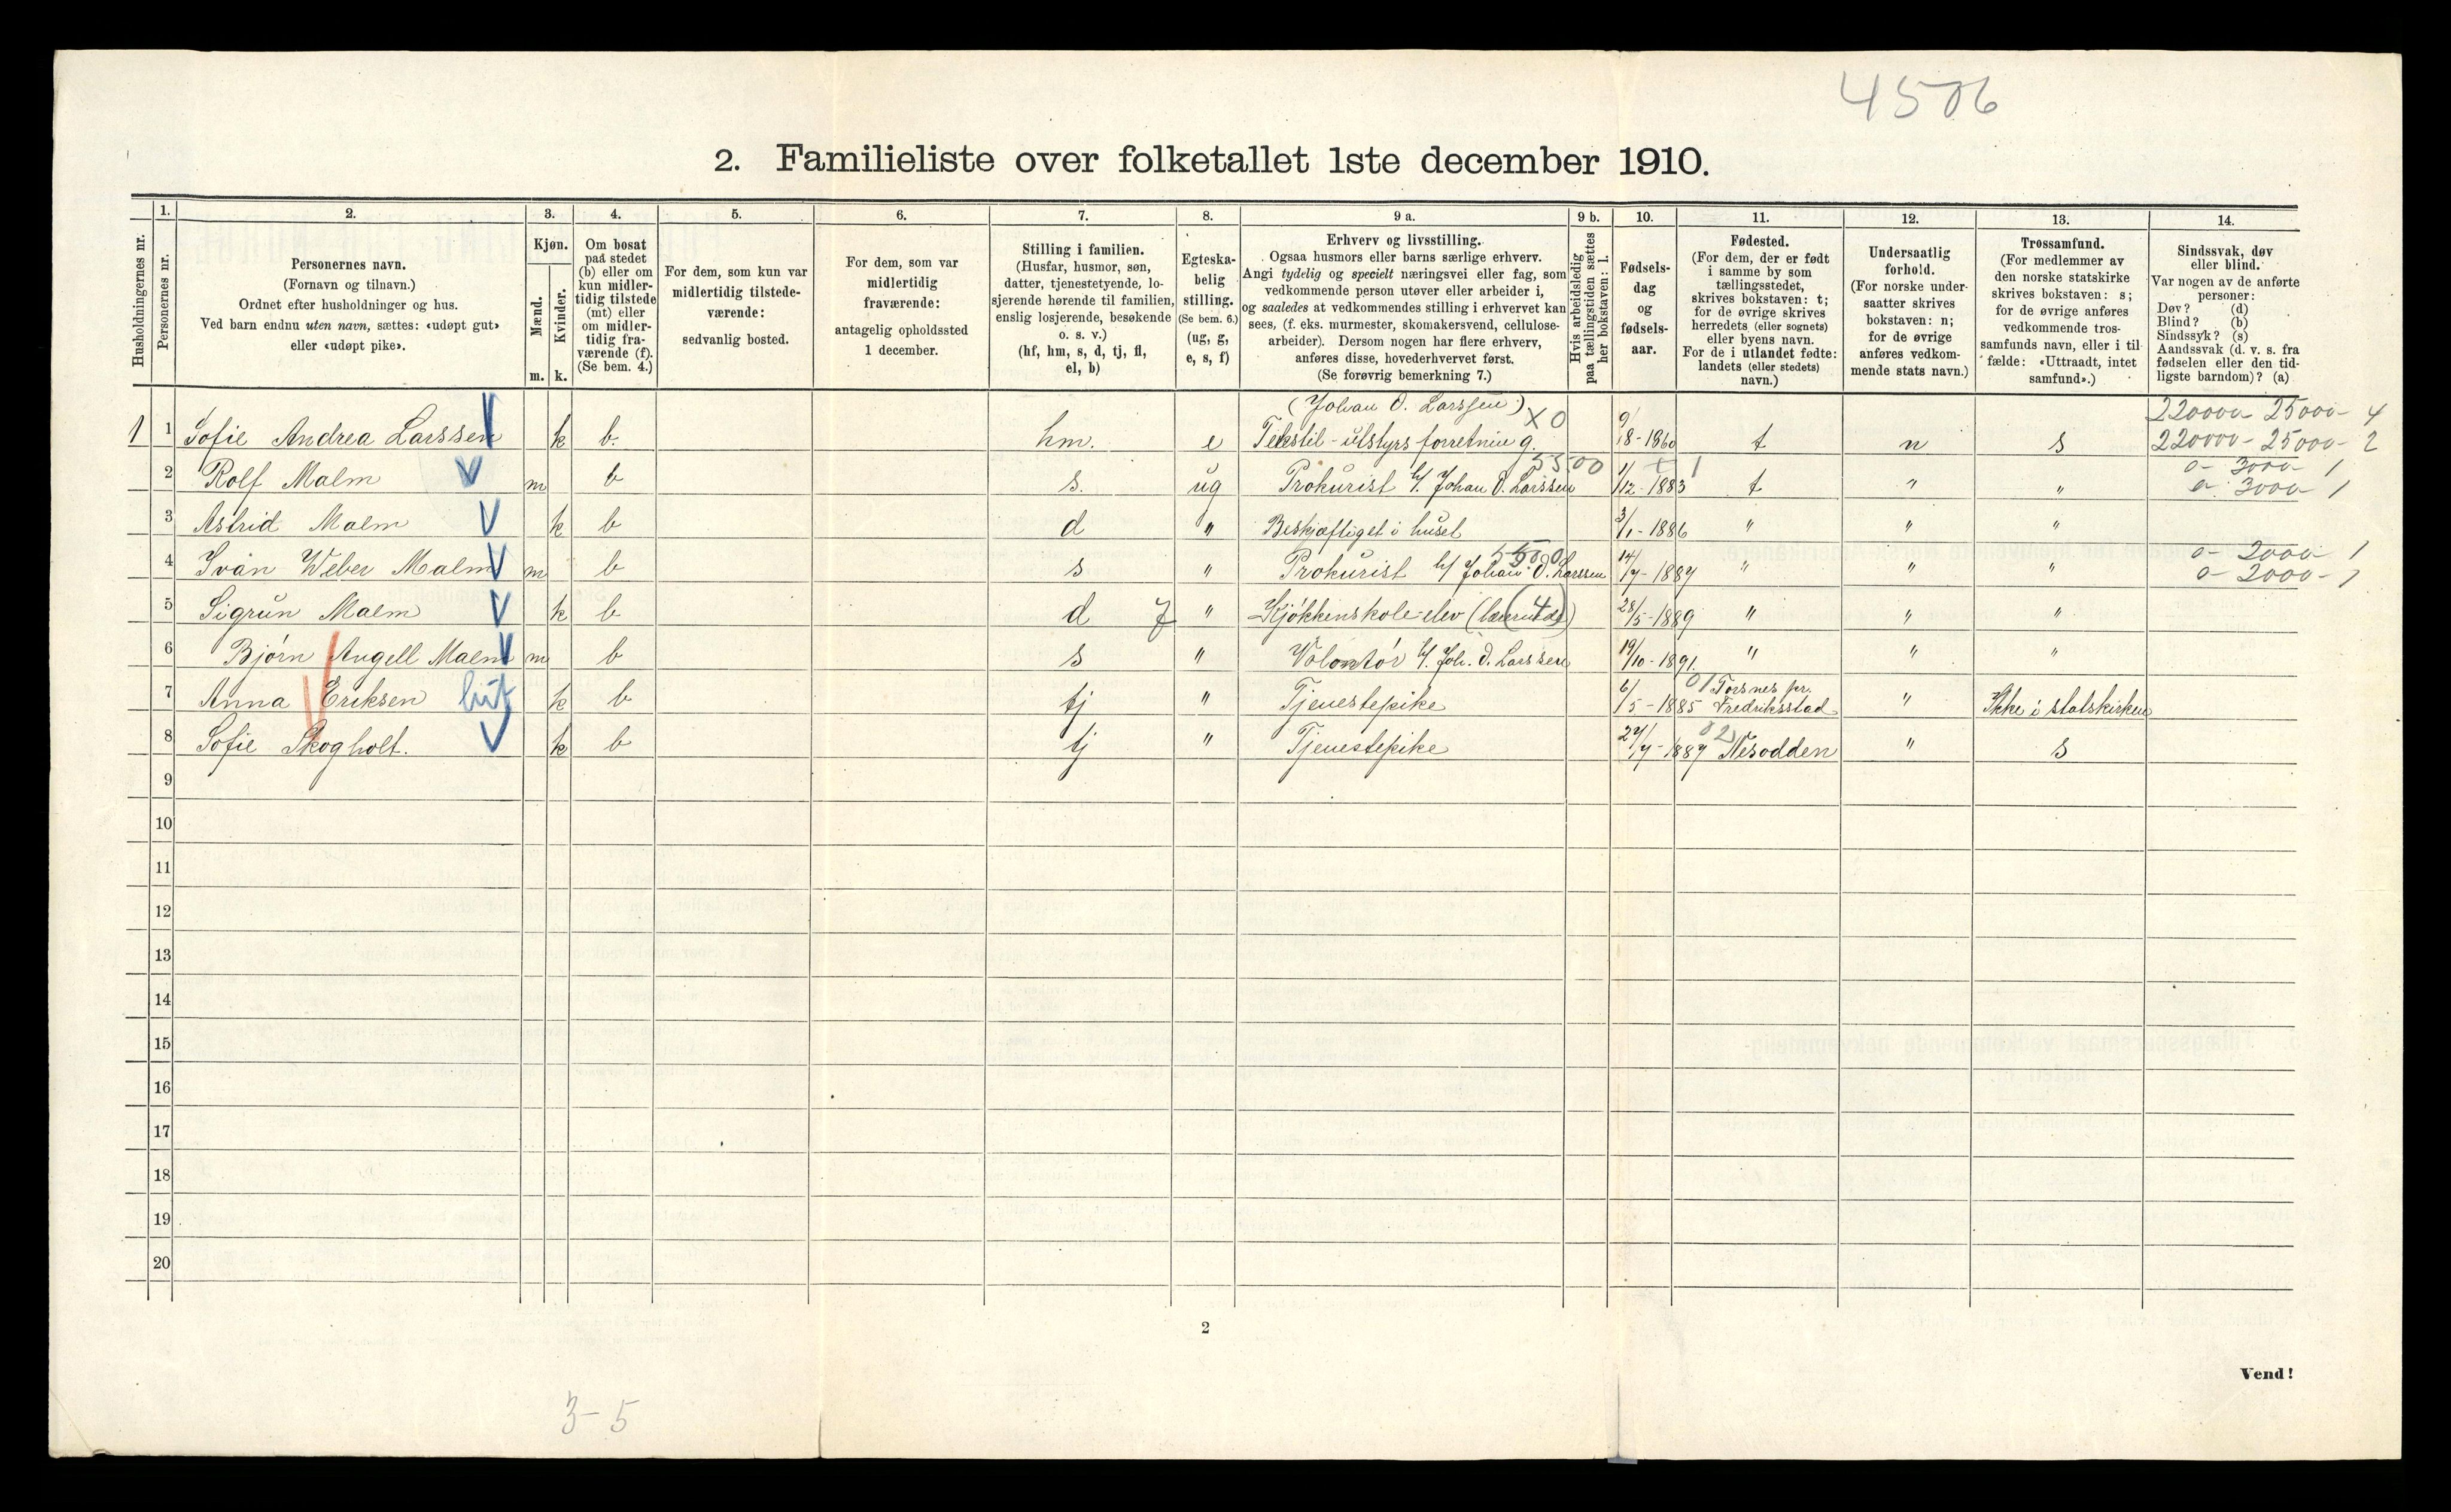 4506
2. Familieliste over folketallet 1ste december 1910.
Husholdningernes nr.
1.
Personernes nr.
2.
Personernes navn.
(Fornavn og tilnavn.)
Ordnet efter husholdninger og hus.
Ved barn endnu uten navn, sættes: «udøpt gut»
eller «udøpt pike».
3.
Kjøn.
Mænd.
Kvinder.
m. k.
4.
Om bosat
paa stedet
(b) eller om
kun midler-
tidig tilstede
(mt) eller
om midler-
tidig fra-
værende (f).
(Se bem. 4.)
5.
For dem, som kun var
midlertidig tilstede-
værende:
sedvanlig bosted.
6.
For dem, som var
midlertidig
fraværende:
antagelig opholdssted
1 december.
7.
Stilling i familien.
(Husfar, husmor, søn,
datter, tjenestetyende, lo-
sjerende hørende til familien,
enslig losjerende, besøkende
o. s. v.)
(hf, hm, s, d, tj, fl,
el, b)
8.
Egteska-
belig
stilling.
(Se bem. 6.)
(ug, g,
e, s, f)
9 a.
Erhverv og livsstilling.
Ogsaa husmors eller barns særlige erhverv.
Angi tydelig og specielt næringsvei eller fag, som
vedkommende person utøver eller arbeider i,
og saaledes at vedkommendes stilling i erhvervet kan
sees, (f. eks. murmester, skomakersvend, cellulose-
arbeider). Dersom nogen har flere erhverv,
anføres disse, hovederhvervet først.
(Se forøvrig bemerkning 7.)
9 b.
Hvis arbeidsledig
paa tællingstiden sættes
her bokstaven: l.
10.
Fødsels-
dag
og
fødsels-
aar.
11.
Fødested.
(For dem, der er født
i samme by som
tællingsstedet,
skrives bokstaven: t;
for de øvrige skrives
herredets (eller sognets)
eller byens navn.
For de i utlandet fødte:
landets (eller stedets)
navn.)
12.
Undersaatlig
forhold.
(For norske under-
saatter skrives
bokstaven: n;
for de øvrige
anføres vedkom-
mende stats navn.)
13.
Trossamfund.
(For medlemmer av
den norske statskirke
skrives bokstaven: s;
for de øvrige anføres
vedkommende tros-
samfunds navn, eller i til-
fælde: «Uttraadt, intet
samfund».)
14.
Sindssvak, døv
eller blind.
Var nogen av de anførte
personer:
Døv? (d)
Blind? (b)
Sindssyk? (s)
Aandssvak (d. v. s. fra
fødselen eller den tid-
ligste barndom)? (a)
(Johan O. Larssen) X0 220000- 25000- 4
1 1 Sofie Andrea Larssen k b. hm. e Tekstil-utstyrs forretning. 9/8-1860 t n s 220000- 25000- 2
5500 t 1 0- 3000- 1
2 Rolf Malm m b s. ug Prokurist h/. Johan O. Larssen 1/12-1883 t " " 0- 3000- 1
3 Astrid Malm k b d " Beskjæftiget i huset 3/1-1886 " " "
5500 0- 2000- 1
4 Ivan Weber Malm m b s " Prokurist h/ Johan O. Larssen 14/7-1887 " " " 0- 2000- 1
5 Sigrun Malm k b d 7 " Kjøkkenskole-elev (4) 28/5-1889 " " "
6 Bjørn Angell Malm m b s " Volontør h/. Joh. O. Larssen 19/10-1891. " " "
7 Anna Eriksen k b tj " Tjenestepike 6/5-1885 01 Torsnes pr. Fredriksstad " Ikke i statskirken
8 Sofie Skogholt. k b tj " Tjenestepike 27/7-1887 02 Nesodden " s
9
10
11
12
13
14
15
16
17
18
19
20
2
Vend!
3-5